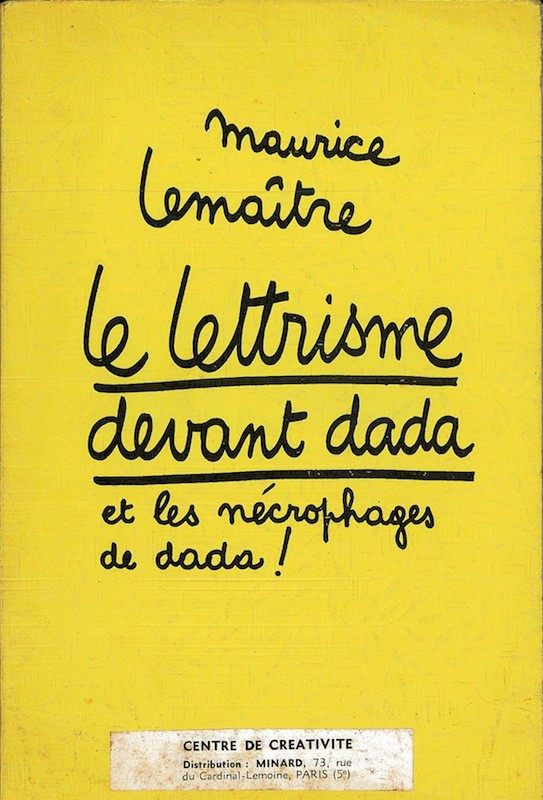 maurice
lemaître
le lettrisme
devant dada
et les nécrophages
de dada !
CENTRE DE CREATIVITE
Distribution : MINARD, 73, rue
du Cardinal-Lemoine, PARIS (5e)